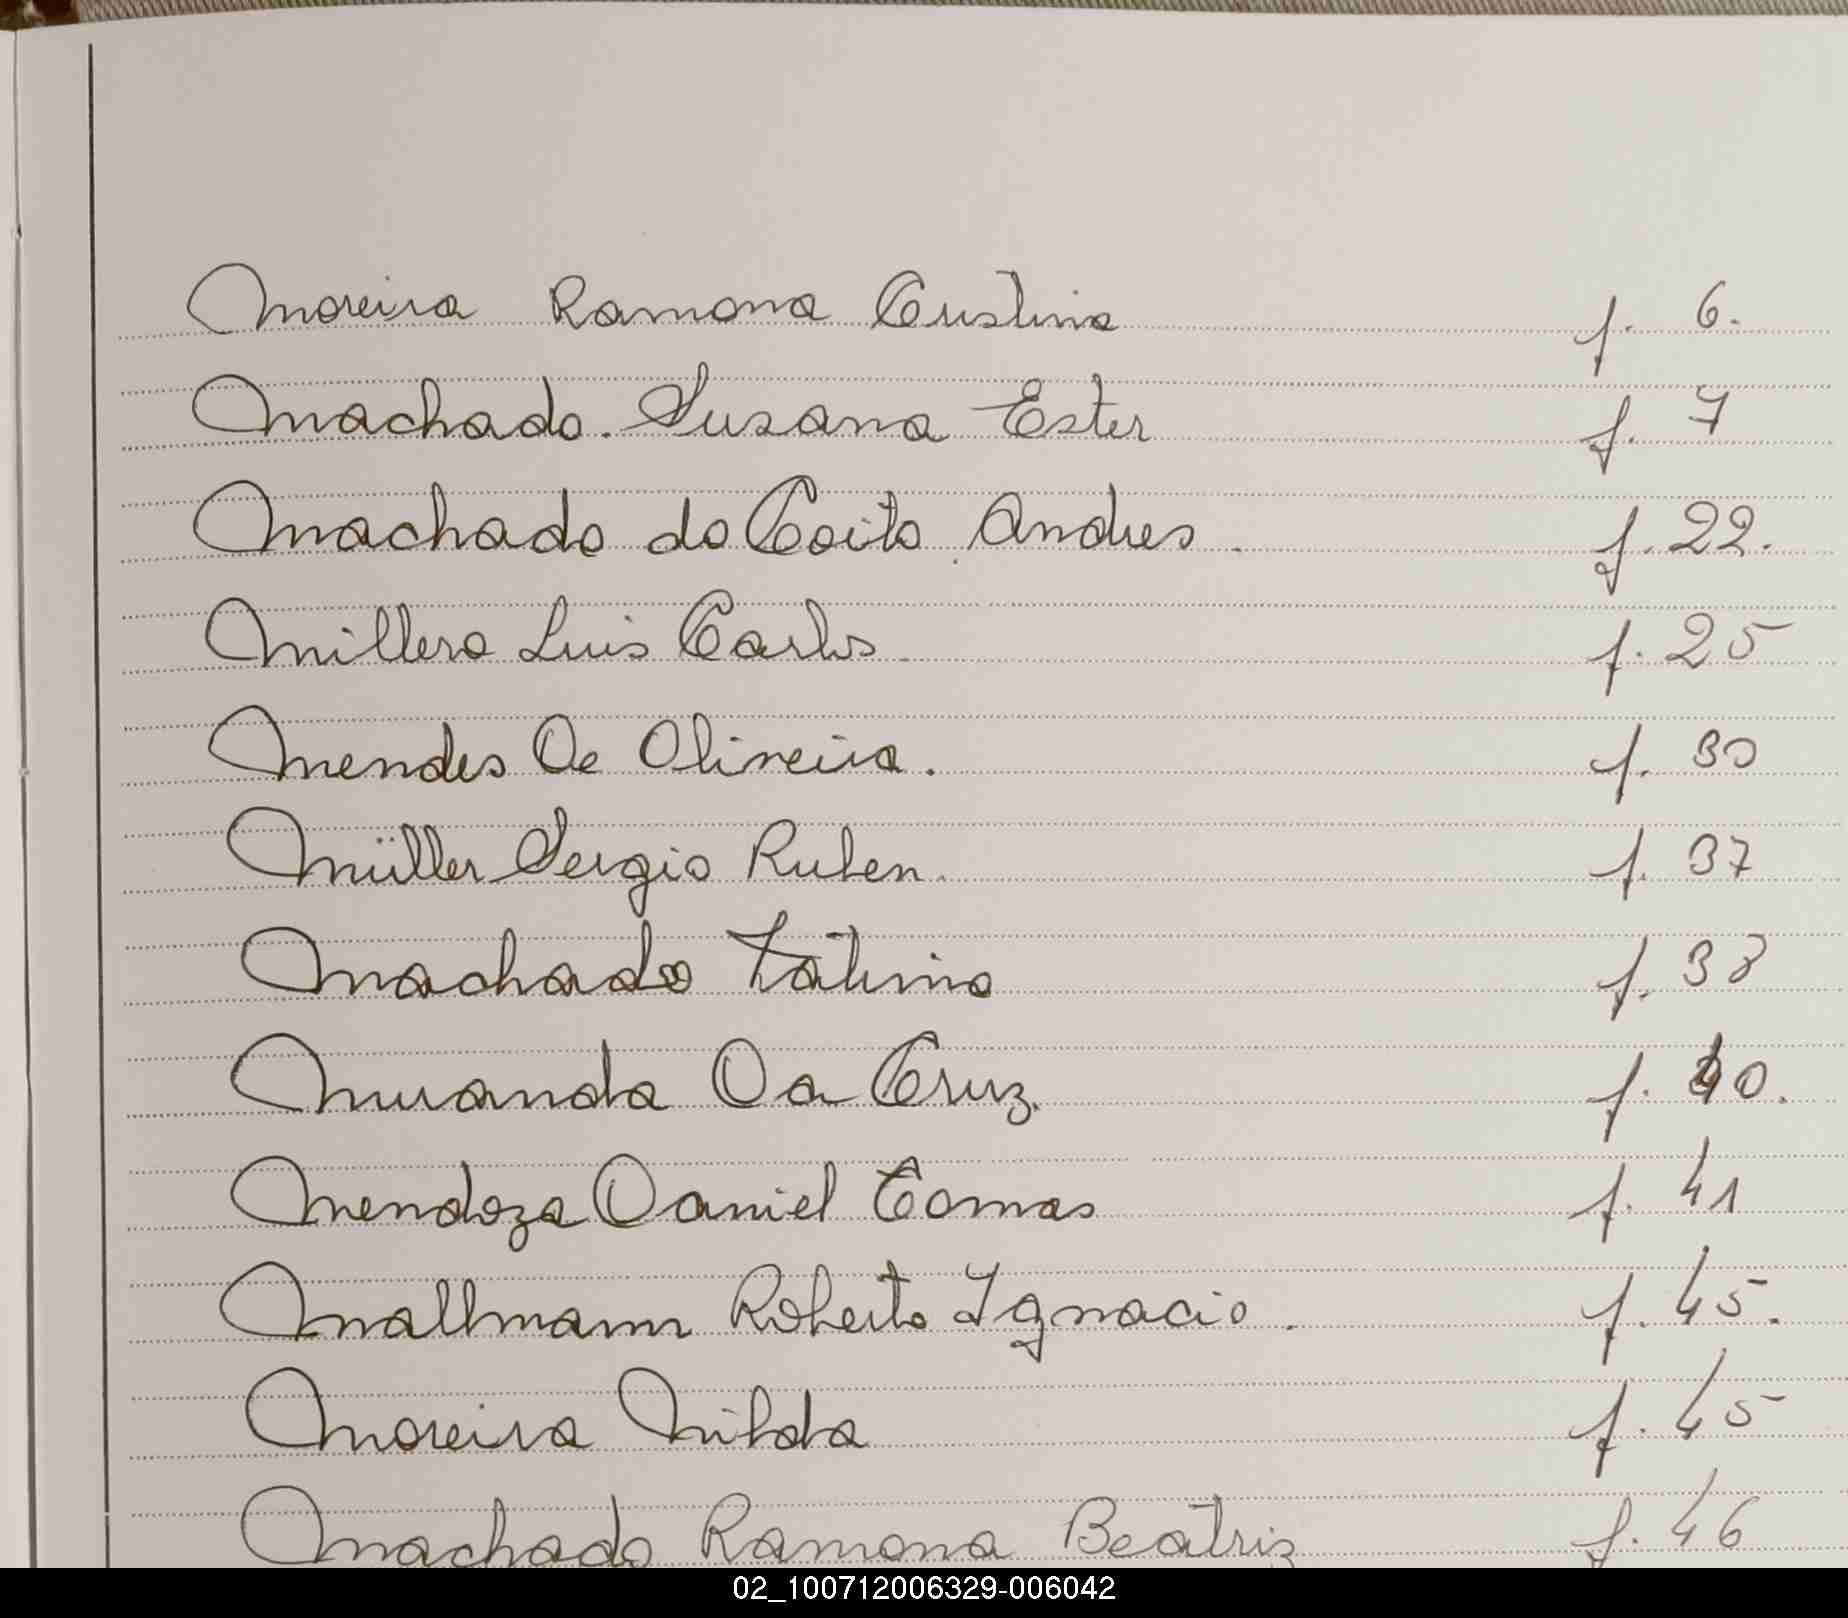 Moreira Ramona Cristina f. 6.
Machado. Susana Ester f. 7
Machado do Coito Andres. f. 22.
Millero Luis Carlos f. 25
Mendes De Oliveira. f. 30
Müller Sergio Ruben. f. 37
Machado Fatima f. 38
Miranda Da Cruz. f. 40.
Mendoza Daniel Tomas f. 41
Mallmann Roberto Ignacio. f. 45.
Moreira Nilda f. 45
Machado Ramona Beatriz f. 46
02_100712006329-006042